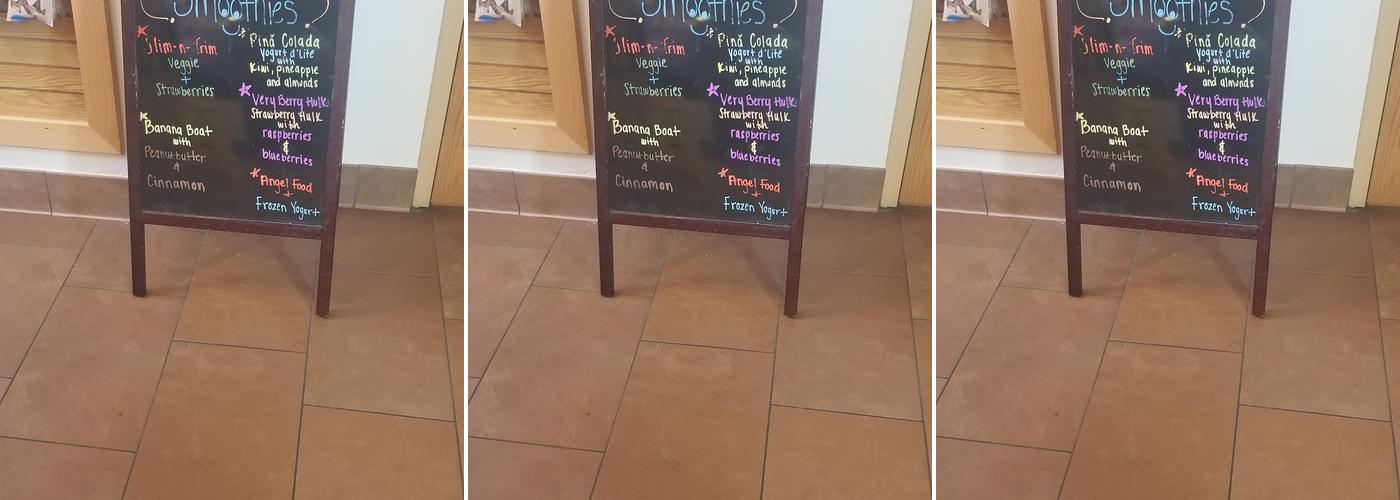 Smoothies
Slim-n-Trim
Veggie
+
Strawberries
Banana Boat
with
Peanutbutter
&
Cinnamon
Pinã Colada
Yogurt d'lite
with
Kiwi, pineapple
and almonds
Very Berry Hulk
Strawberry Hulk
with
raspberries
&
blueberries
Angel Food
+
Frozen Yogurt
Smoothies
Slim-n-Trim
Veggie
+
Strawberries
Banana Boat
with
Peanutbutter
&
Cinnamon
Pinã Colada
Yogurt d'lite
with
Kiwi, pineapple
and almonds
Very Berry Hulk
Strawberry Hulk
with
raspberries
&
blueberries
Angel Food
+
Frozen Yogurt
Smoothies
Slim-n-Trim
Veggie
+
Strawberries
Banana Boat
with
Peanutbutter
&
Cinnamon
Pinã Colada
Yogurt d'lite
with
Kiwi, pineapple
and almonds
Very Berry Hulk
Strawberry Hulk
with
raspberries
&
blueberries
Angel Food
+
Frozen Yogurt